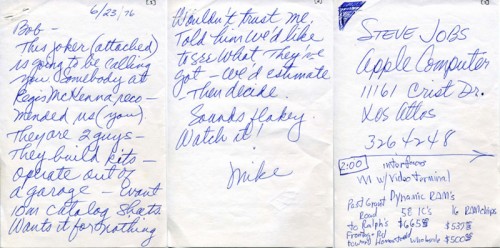 [1]
6/23/76
Bob -
This joker (attached)
is going to be calling
you. Somebody at
Regis McKenna reco-
mended us (you)
They are 2 guys -
they build kits -
operate out of
a garage - want
our catalog sheets.
Wants it for nothing
[2]
Wouldn't trust me.
Told him we'd like
to see what they've
got - we'd estimate
- Then decide.
Sounds flakey.
Watch it!
Mike
[3]
STEVE JOBS
Apple Computer
11161 Crist Dr.
Los Altos
326 4248
2:00 interfaces
w/video terminal
Dynamic RAM's
Road 58 IC's 16 RAM chips
to Ralph's $665 $537
$500